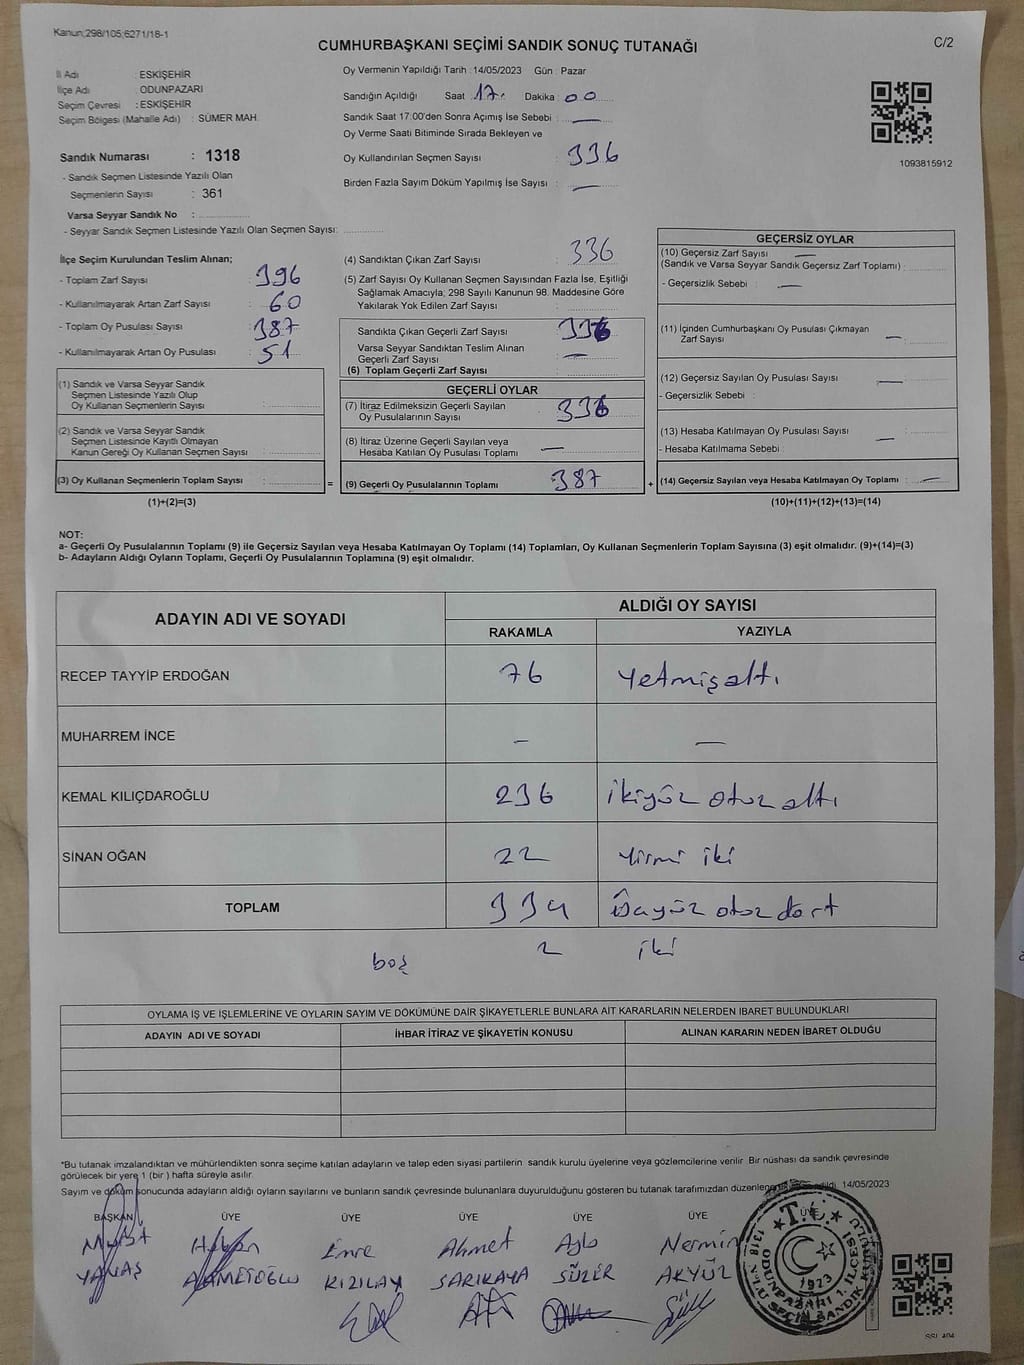 Kanun;298/105;6271/18-1
CUMHURBAŞKANI SEÇİMİ SANDIK SONUÇ TUTANAĞI
C/2
İl Adı : ESKİŞEHİR
İlçe Adı : ODUNPAZARI
Seçim Çevresi : ESKİŞEHİR
Seçim Bölgesi (Mahalle Adı) : SÜMER MAH.
Sandık Numarası : 1318
- Sandık Seçmen Listesinde Yazılı Olan
Seçmenlerin Sayısı : 361
Varsa Seyyar Sandık No :
- Seyyar Sandık Seçmen Listesinde Yazılı Olan Seçmen Sayısı:
Oy Vermenin Yapıldığı Tarih : 14/05/2023 Gün : Pazar
Sandığın Açıldığı Saat : 17 Dakika : 00
Sandık Saat 17.00'den Sonra Açımış İse Sebebi : —
Oy Verme Saati Bitiminde Sırada Bekleyen ve
Oy Kullandırılan Seçmen Sayısı : 336
Birden Fazla Sayım Döküm Yapılmış İse Sayısı : —
1093815912
İlçe Seçim Kurulundan Teslim Alınan;
- Toplam Zarf Sayısı : 396
- Kullanılmayarak Artan Zarf Sayısı : 60
- Toplam Oy Pusulası Sayısı : 387
- Kullanılmayarak Artan Oy Pusulası : 51
(1) Sandık ve Varsa Seyyar Sandık
Seçmen Listesinde Yazılı Olup
Oy Kullanan Seçmenlerin Sayısı :
(2) Sandık ve Varsa Seyyar Sandık
Seçmen Listesinde Kayıtlı Olmayan
Kanun Gereği Oy Kullanan Seçmen Sayısı :
(3) Oy Kullanan Seçmenlerin Toplam Sayısı :
(1)+(2)=(3)
=
(4) Sandıktan Çıkan Zarf Sayısı : 336
(5) Zarf Sayısı Oy Kullanan Seçmen Sayısından Fazla İse, Eşitliği
Sağlamak Amacıyla; 298 Sayılı Kanunun 98. Maddesine Göre
Yakılarak Yok Edilen Zarf Sayısı :
Sandıkta Çıkan Geçerli Zarf Sayısı : 336
Varsa Seyyar Sandıktan Teslim Alınan
Geçerli Zarf Sayısı : —
(6) Toplam Geçerli Zarf Sayısı :
GEÇERLİ OYLAR
(7) İtiraz Edilmeksizin Geçerli Sayılan
Oy Pusulalarının Sayısı : 336
(8) İtiraz Üzerine Geçerli Sayılan veya
Hesaba Katılan Oy Pusulası Toplamı : —
(9) Geçerli Oy Pusulalarının Toplamı : 387
+
GEÇERSİZ OYLAR
(10) Geçersiz Zarf Sayısı —
(Sandık ve Varsa Seyyar Sandık Geçersiz Zarf Toplamı) :
- Geçersizlik Sebebi : —
(11) İçinden Cumhurbaşkanı Oy Pusulası Çıkmayan
Zarf Sayısı : —
(12) Geçersiz Sayılan Oy Pusulası Sayısı : —
- Geçersizlik Sebebi :
(13) Hesaba Katılmayan Oy Pusulası Sayısı : —
- Hesaba Katılmama Sebebi :
(14) Geçersiz Sayılan veya Hesaba Katılmayan Oy Toplamı : —
(10)+(11)+(12)+(13)=(14)
NOT:
a- Geçerli Oy Pusulalarının Toplamı (9) ile Geçersiz Sayılan veya Hesaba Katılmayan Oy Toplamı (14) Toplamları, Oy Kullanan Seçmenlerin Toplam Sayısına (3) eşit olmalıdır. (9)+(14)=(3)
b- Adayların Aldığı Oyların Toplamı, Geçerli Oy Pusulalarının Toplamına (9) eşit olmalıdır.
ADAYIN ADI VE SOYADI
ALDIĞI OY SAYISI
RAKAMLA YAZIYLA
RECEP TAYYİP ERDOĞAN 76 yetmişaltı
MUHARREM İNCE — —
KEMAL KILIÇDAROĞLU 236 ikiyüz otuz altı
SİNAN OĞAN 22 yirmi iki
TOPLAM 334 üçyüz otuz dört
boş 2 iki
OYLAMA İŞ VE İŞLEMLERİNE VE OYLARIN SAYIM VE DÖKÜMÜNE DAİR ŞİKAYETLERLE BUNLARA AİT KARARLARIN NELERDEN İBARET BULUNDUKLARI
ADAYIN ADI VE SOYADI İHBAR İTİRAZ VE ŞİKAYETİN KONUSU ALINAN KARARIN NEDEN İBARET OLDUĞU
*Bu tutanak imzalandıktan ve mühürlendikten sonra seçime katılan adayların ve talep eden siyasi partilerin sandık kurulu üyelerine veya gözlemcilerine verilir. Bir nüshası da sandık çevresinde
görülecek bir yere 1 (bir) hafta süreyle asılır.
Sayım ve döküm sonucunda adayların aldığı oyların sayılarını ve bunların sandık çevresinde bulunanlara duyurulduğunu gösteren bu tutanak tarafımızdan 14/05/2023
BAŞKAN ÜYE ÜYE ÜYE ÜYE ÜYE ÜYE
Hakan Emre Ahmet Nermin
YANAŞ AHMETOĞLU KIZILAY SARIKAYA SÜZER AKYÜZ
T.C.
1923
ODUNPAZARI 1. İLÇESİ
1318 NO'LU SEÇİM SANDIK KURULU